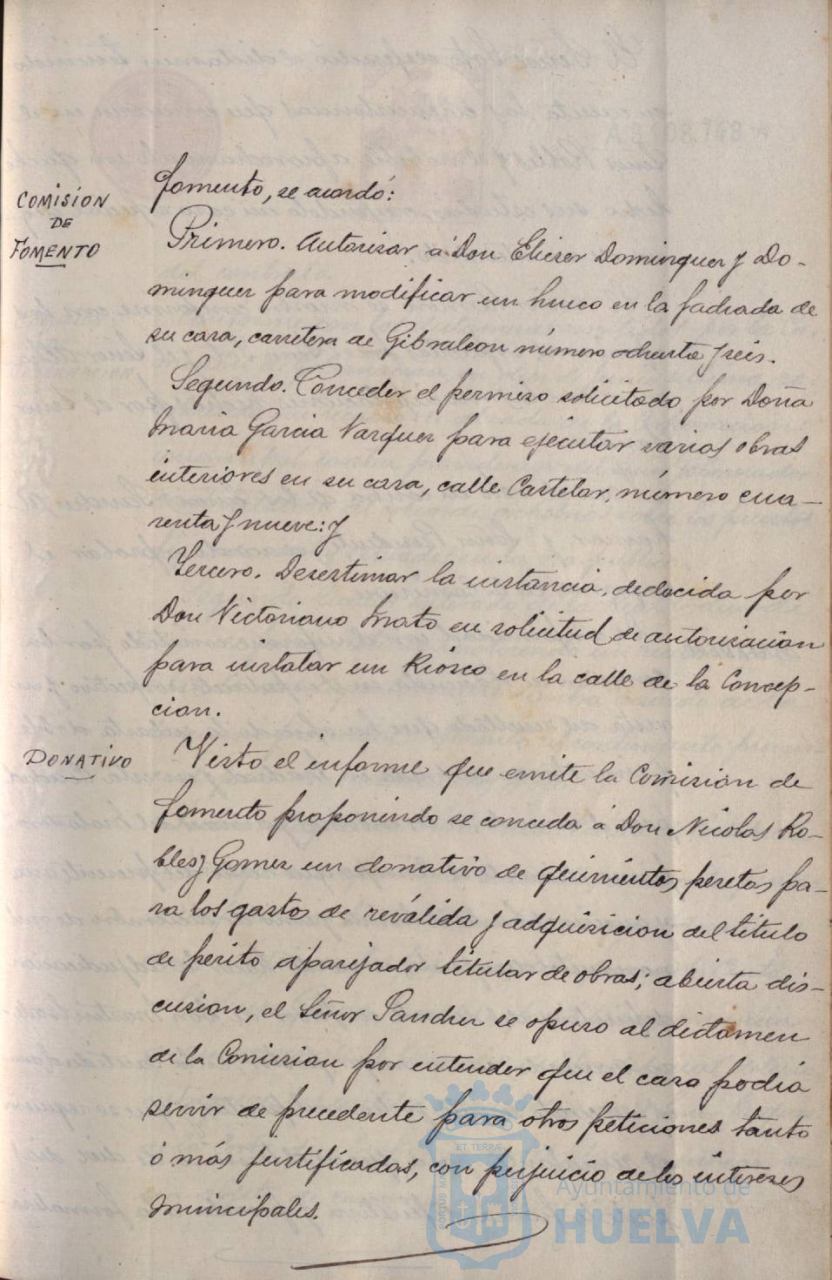 fomento, se acordó:
COMISIÓN
DE
FOMENTO
Primero. Autorizar á Don Eliezer Dominguez y Do-
minguez para modificar un hueco en la fachada de
su casa, carretera de Gibraleon número ochenta y seis.
Segundo. Conceder el permiso solicitado por Doña
Maria Garcia Vazquez para ejecutar varias obras
interiores en su casa, calle Castelar, número cua-
renta y nueve: y
Tercero. Desestimar la instancia, deducida por
Don Victoriano Mato en solicitud de autorizacion
para instalar un Kiosco en la calle de la Concep-
cion.
DONATIVO
Visto el informe que emite la Comision de
fomento proponiendo se conceda á Don Nicolas Ro-
bles y Gomez un donativo de quinientas pesetas pa-
ra los gastos de reválida y adquisicion del titulo
de perito aparejador titular de obras; abierta dis-
cusion, el Señor Sanchez se opuso al dictamen
de la Comision por entender que el caso podia
servir de precedente para otras peticiones tanto
ó más justificadas, con perjuicio de los intereses
municipales.
Ayuntamiento de
HUELVA